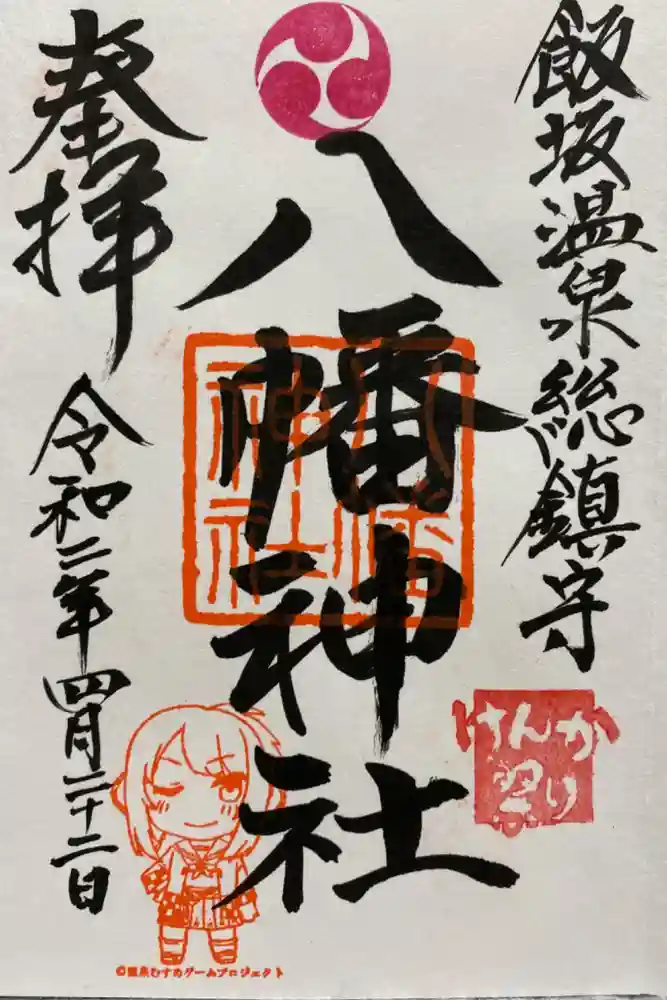 飯坂温泉総鎮守
八幡神社
八幡
神社
けんか
祭り
奉拝
令和二年四月二十二日
©温泉むすめゲームプロジェクト